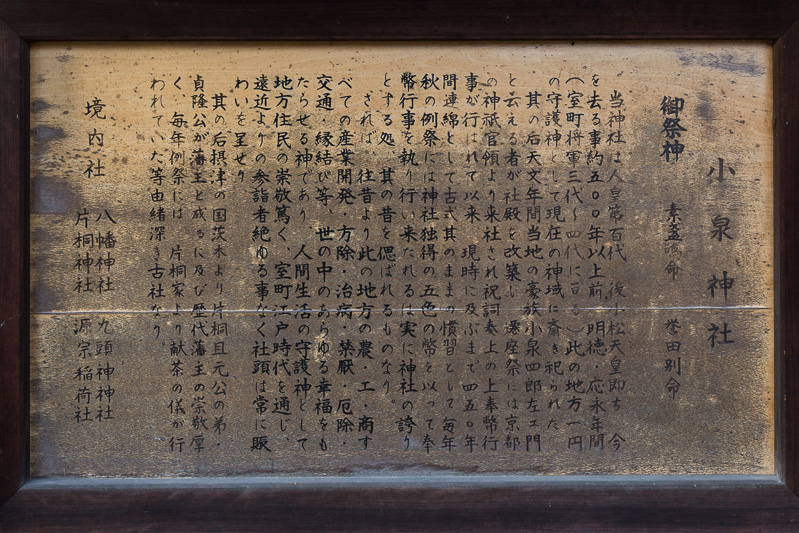 小泉神社
御祭神　素盞嗚命　誉田別命
当神社は人皇第百代　後小松天皇即ち　今
を去る事約五〇〇年以上前、明徳・応永年間
（室町将軍三代〜四代に亘る）此の地方一円
の守護神として現在の神域に斎き祀られた。
其の后天文年間当地の豪族小泉四郎左ェ門
と云える者が社殿を改築し　遷座祭には京都
の神祇官領より来社され祝詞奏上の上奉幣行
事が行はれて以来、現時に及ぶまで四五〇年
間連綿として古式其のままの慣習として毎年
秋の例祭には神社独得の五色の幣を以って奉
幣行事を執り行い来たれるは実に神社の誇り
とする処、其の昔を偲ばれるものなり。
されば、往昔より此の地方の農・工・商す
べての産業開発・方除・治病・禁厭・厄除・
交通・縁結び等、世の中のあらゆる幸福をも
たらせる神であり、人間生活の守護神として
地方住民の崇敬篤く、室町江戸時代を通じ、
遠近よりの参詣者絶ゆる事なく社頭は常に賑
わいを呈せり
其の后摂津の国茨木より片桐且元公の弟・
貞隆公が藩主と成るに及び歴代藩主の崇敬厚
く、毎年例祭には　片桐家より献茶の儀が行
われていた等由緒深き古社なり。
境内社　八幡神社　九頭神神社
片桐神社　源宗稲荷社